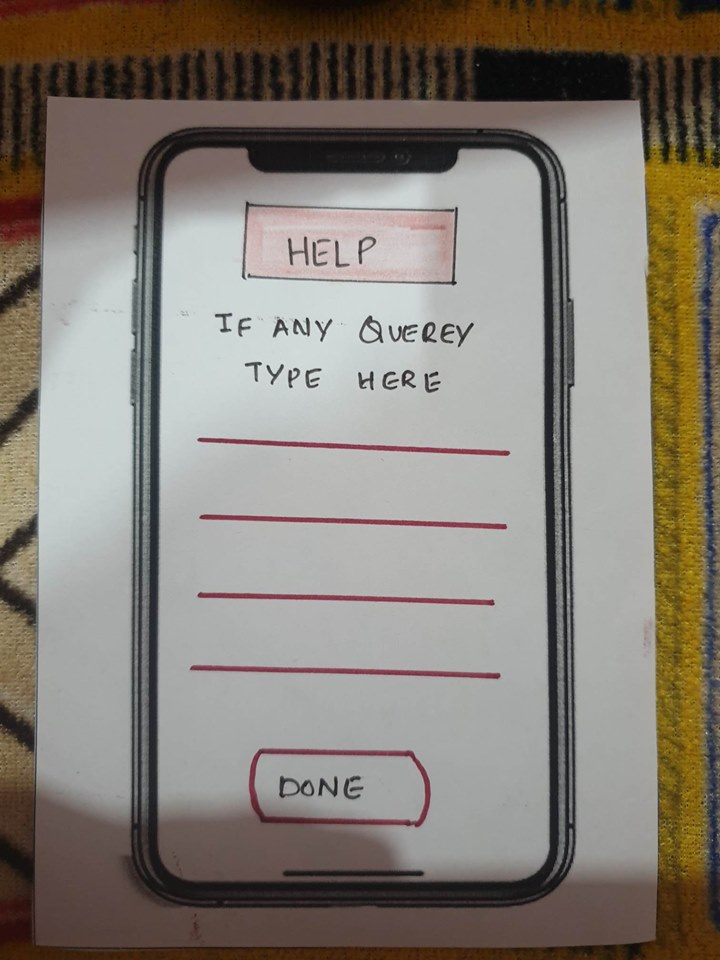 HELP
IF ANY QUEREY
TYPE HERE
DONE